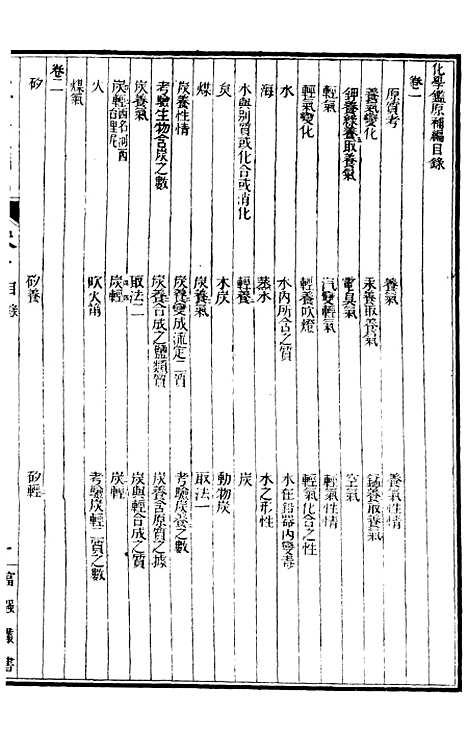 化學鑑原補編目錄
卷一
原質考　養氣　養氣性情
養氣變化　汞養取養氣　錳養取養氣
鉀養綠養取養氣　電臭氣　空氣
輕氣　汽變輕氣　輕氣性情
輕氣變化　輕養吹燈　輕氣化合之性
水　水內所合之質　水在鉛器內變毒
海水　蒸水　水之形性
水與別質或化合或消化　輕養　炭
炭　木炭　動物炭
煤　炭養氣　取法一
炭養性情　炭養變成流定二質　考驗炭養之數
考驗生物含炭之數　炭養合成之鹽類質　炭養含原質之據
炭養氣　取法二　炭與輕合成之質
炭輕　炭輕　炭輕
火　吹火筒　考驗炭輕二質之數
煤氣
卷二
矽　矽養　矽輕
目錄
一
富強叢書